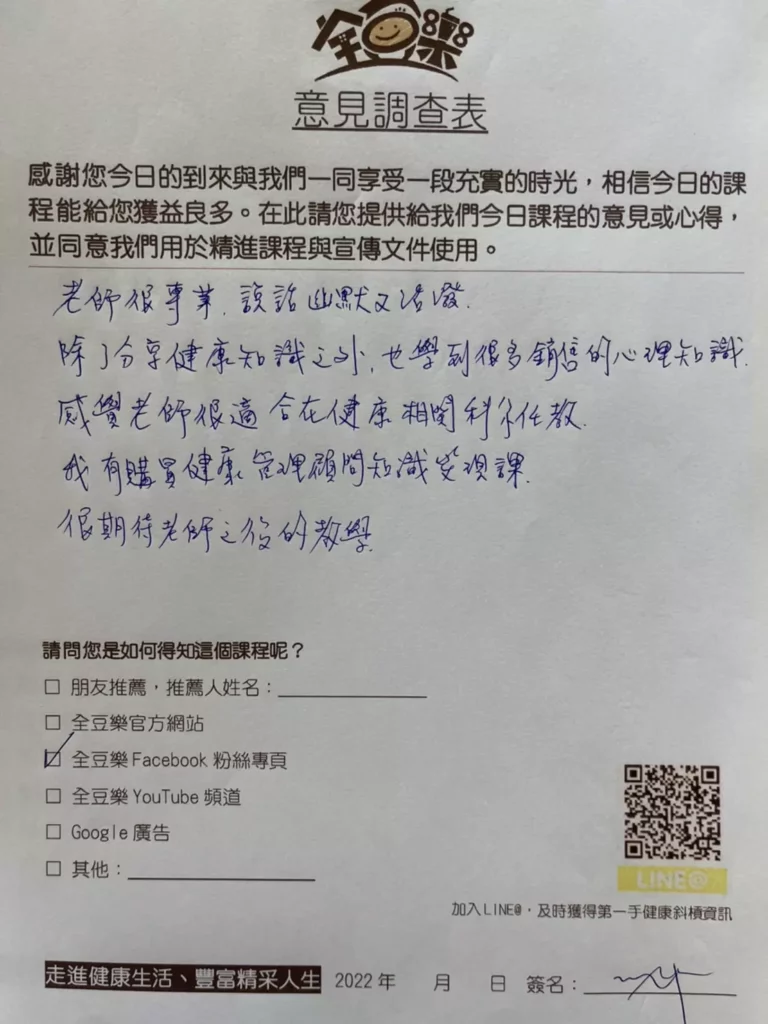 全豆樂
意見調查表
感謝您今日的到來與我們一同享受一段充實的時光，相信今日的課
程能給您獲益良多。在此請您提供給我們今日課程的意見或心得，
並同意我們用於精進課程與宣傳文件使用。
老師很專業,談話幽默又活潑.
除了分享健康知識之外,也學到很多銷售的心理知識.
感覺老師很適合在健康相關科系任教.
我有購買健康管理顧問知識變現課.
很期待老師之後的教學.
請問您是如何得知這個課程呢？
□ 朋友推薦，推薦人姓名：
□ 全豆樂官方網站
☑ 全豆樂 Facebook 粉絲專頁
□ 全豆樂 YouTube 頻道
□ Google 廣告
□ 其他：
LINE@
加入LINE@，及時獲得第一手健康斜槓資訊
走進健康生活、豐富精采人生 2022 年 月 日 簽名：